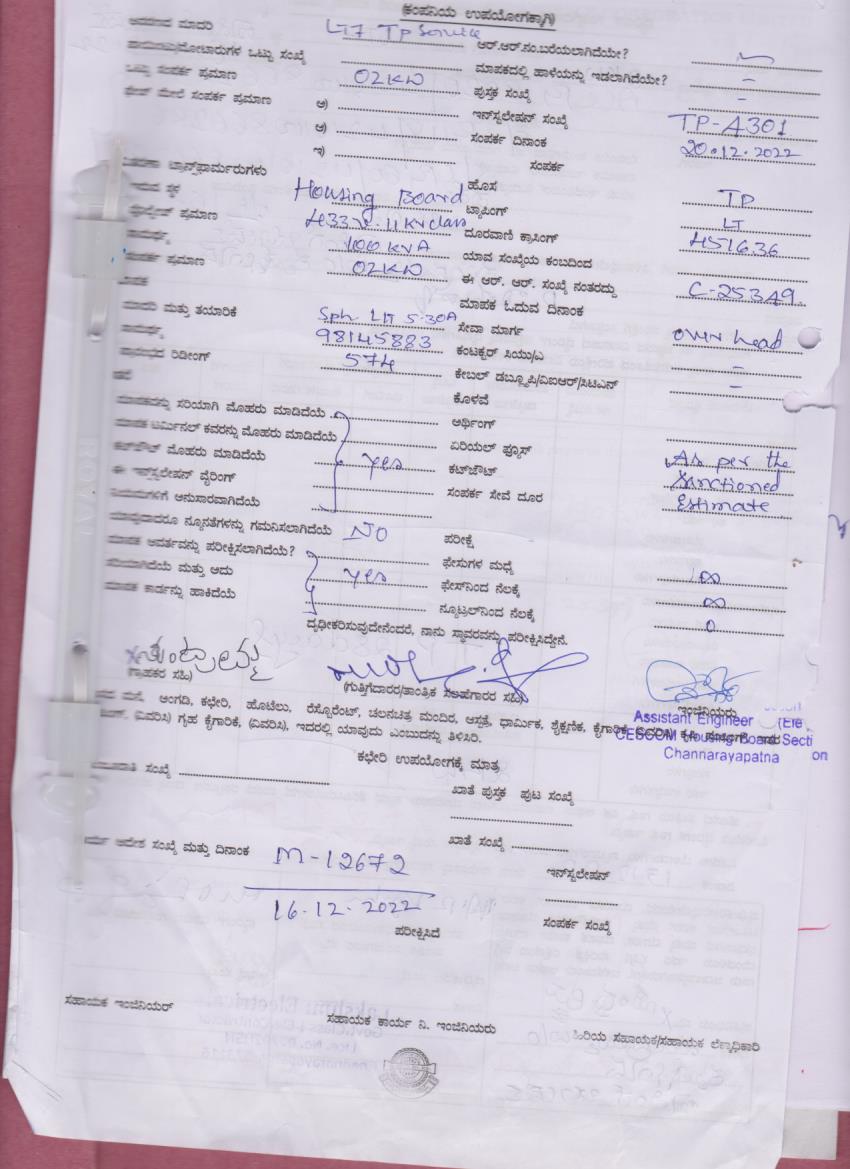 (ಕಂಪನಿಯ ಉಪಯೋಗಕ್ಕಾಗಿ)
ಮಾದರಿ LT7 TP Service ಆರ್.ಆರ್.ನಂ.ಬರೆಯಲಾಗಿದೆಯೇ?
ಒಟ್ಟು ಸಂಖ್ಯೆ ಮಾಪಕದಲ್ಲಿ ಹಾಳೆಯನ್ನು ಇಡಲಾಗಿದೆಯೇ? –
ಒಟ್ಟು ಸಂಪರ್ಕ ಪ್ರಮಾಣ 02KW ಪುಸ್ತಕ ಸಂಖ್ಯೆ –
ಮೇಲೆ ಸಂಪರ್ಕ ಪ್ರಮಾಣ ಅ) ಇನ್‌ಸ್ಟಲೇಷನ್ ಸಂಖ್ಯೆ TP-A301
ಆ) ಸಂಪರ್ಕ ದಿನಾಂಕ 20.12.2022
ಇ) ಸಂಪರ್ಕ
ಟ್ರಾನ್ಸ್‌ಫಾರ್ಮರುಗಳು ಹೊಸ TP
ಇರುವ ಸ್ಥಳ Housing Board ಟ್ಯಾಪಿಂಗ್ LT
ಪ್ರಮಾಣ 433V. 11 KV class ದೂರವಾಣಿ ಕ್ರಾಸಿಂಗ್ 451636
ಸಾಮರ್ಥ್ಯ 100 KVA ಯಾವ ಸಂಖ್ಯೆಯ ಕಂಬದಿಂದ
ಸಂಪರ್ಕ ಪ್ರಮಾಣ 02KW ಈ ಆರ್. ಆರ್. ಸಂಖ್ಯೆ ನಂತರದ್ದು C-25349.
ಮಾಪಕ ಮಾಪಕ ಓದುವ ದಿನಾಂಕ
ಮಾದರಿ ಮತ್ತು ತಯಾರಿಕೆ Sph LIT 5-30A ಸೇವಾ ಮಾರ್ಗ over head
ಸಾಮರ್ಥ್ಯ 98145883 ಕಂಟಕ್ಟರ್ ಸಿಯು/ಎ –
ರಿಡೀಂಗ್ 574 ಕೇಬಲ್ ಡಬ್ಲ್ಯೂಪಿ/ವಿಐಆರ್/ಸಿಟಿಎಸ್ –
ಕೊಳವೆ
ಮಾಪಕವನ್ನು ಸರಿಯಾಗಿ ಮೊಹರು ಮಾಡಿದೆಯೆ ಅರ್ಥಿಂಗ್
ಮಾಪಕ ಟರ್ಮಿನಲ್ ಕವರನ್ನು ಮೊಹರು ಮಾಡಿದೆಯೆ ಏರಿಯಲ್ ಫ್ಯೂಸ್
ಕಟ್‌ಔಟ್ ಮೊಹರು ಮಾಡಿದೆಯೆ yes ಕಟ್‌ಔಟ್ As per the
ಈ ಇನ್‌ಸ್ಟಲೇಷನ್ ವೈರಿಂಗ್ ಸಂಪರ್ಕ ಸೇವೆ ದೂರ Sanctioned
ನಿಯಮಗಳಿಗೆ ಅನುಸಾರವಾಗಿದೆಯೆ Estimate
ಯಾವುದಾದರೂ ನ್ಯೂನತೆಗಳನ್ನು ಗಮನಿಸಲಾಗಿದೆಯೆ NO ಪರೀಕ್ಷೆ
ಮಾಪಕ ಆವರ್ತವನ್ನು ಪರೀಕ್ಷಿಸಲಾಗಿದೆಯೆ? ಫೇಸುಗಳ ಮಧ್ಯೆ ∞
ಸರಿಯಾಗಿದೆಯೆ ಮತ್ತು ಅದು yes ಫೇಸ್‌ನಿಂದ ನೆಲಕ್ಕೆ ∞
ಮಾಪಕ ಕಾರ್ಡನ್ನು ಹಾಕಿದೆಯೆ ನ್ಯೂಟ್ರಲ್‌ನಿಂದ ನೆಲಕ್ಕೆ 0
ದೃಢೀಕರಿಸುವುದೇನೆಂದರೆ, ನಾನು ಸ್ಥಾವರವನ್ನು ಪರೀಕ್ಷಿಸಿದ್ದೇನೆ.
(ಗ್ರಾಹಕರ ಸಹಿ) (ಗುತ್ತಿಗೆದಾರರ/ತಾಂತ್ರಿಕ ಸಲಹೆಗಾರರ ಸಹಿ) ಇಂಜಿನಿಯರು
ಮನೆ, ಅಂಗಡಿ, ಕಛೇರಿ, ಹೊಟೆಲು, ರೆಸ್ಟೋರೆಂಟ್, ಚಲನಚಿತ್ರ ಮಂದಿರ, ಆಸ್ಪತ್ರೆ, ಧಾರ್ಮಿಕ, ಶೈಕ್ಷಣಿಕ, ಕೈಗಾರಿಕೆ,
(ವಿವರಿಸಿ) ಗೃಹ ಕೈಗಾರಿಕೆ, (ವಿವರಿಸಿ), ಇದರಲ್ಲಿ ಯಾವುದು ಎಂಬುದನ್ನು ತಿಳಿಸಿರಿ.
Assistant Engineer (Ele
CESCOM Housing Board Secti
Channarayapatna on
ಕಛೇರಿ ಉಪಯೋಗಕ್ಕೆ ಮಾತ್ರ
ಸಂಖ್ಯೆ ಖಾತೆ ಪುಸ್ತಕ ಪುಟ ಸಂಖ್ಯೆ
ಆದೇಶ ಸಂಖ್ಯೆ ಮತ್ತು ದಿನಾಂಕ ಖಾತೆ ಸಂಖ್ಯೆ
M-12672 ಇನ್‌ಸ್ಟಲೇಷನ್
16.12.2022 ಸಂಪರ್ಕ ಸಂಖ್ಯೆ
ಪರೀಕ್ಷಿಸಿದೆ
ಸಹಾಯಕ ಇಂಜಿನಿಯರ್ ಸಹಾಯಕ ಕಾರ್ಯ ನಿ. ಇಂಜಿನಿಯರು ಹಿರಿಯ ಸಹಾಯಕ/ಸಹಾಯಕ ಲೆಖ್ಖಾಧಿಕಾರಿ